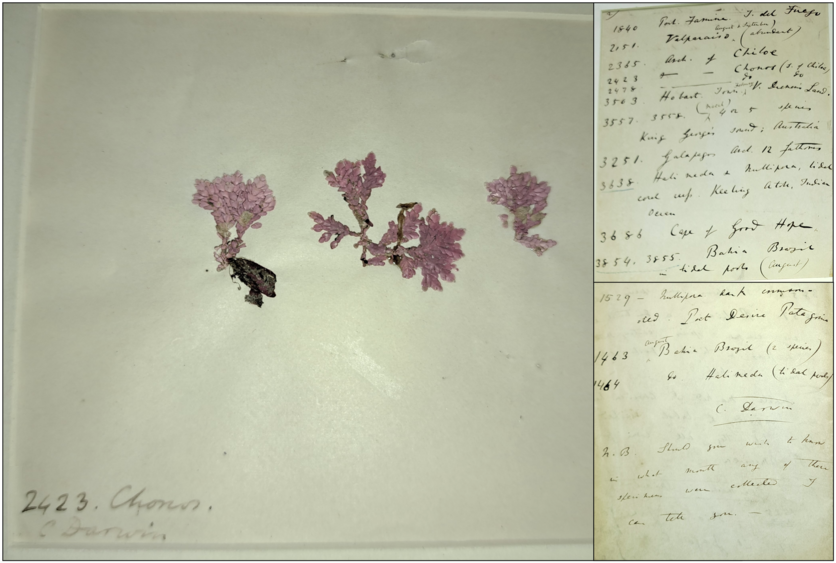 2423. Chonos.
C Darwin
1840 Port Famine T. del Fuego
2151. Valparaiso. (abundant)
2365 Arch. of Chiloe
2423 — — Chonos (S. of Chiloe)
2478 do do
3503. Hobart Town, V. Diemens Land.
3557. 3558. 4 or 5 species
King George's Sound; Australia
3251. Galapagos Arch 12 fathoms
3638. Halimeda & Nullipora, tidal
coral reef. Keeling Atoll, Indian
Ocean
3686 Cape of Good Hope.
3854. 3855 Bahia Brazil
— tidal pools (August)
1529 — Nullipora
Port Desire Patagonia
August
1463 Bahia Brazil (2 species)
1464 do Halimeda (tidal pools)
C. Darwin
N.B Should you wish to know
in what month any of these
specimens were collected I
can tell you. —